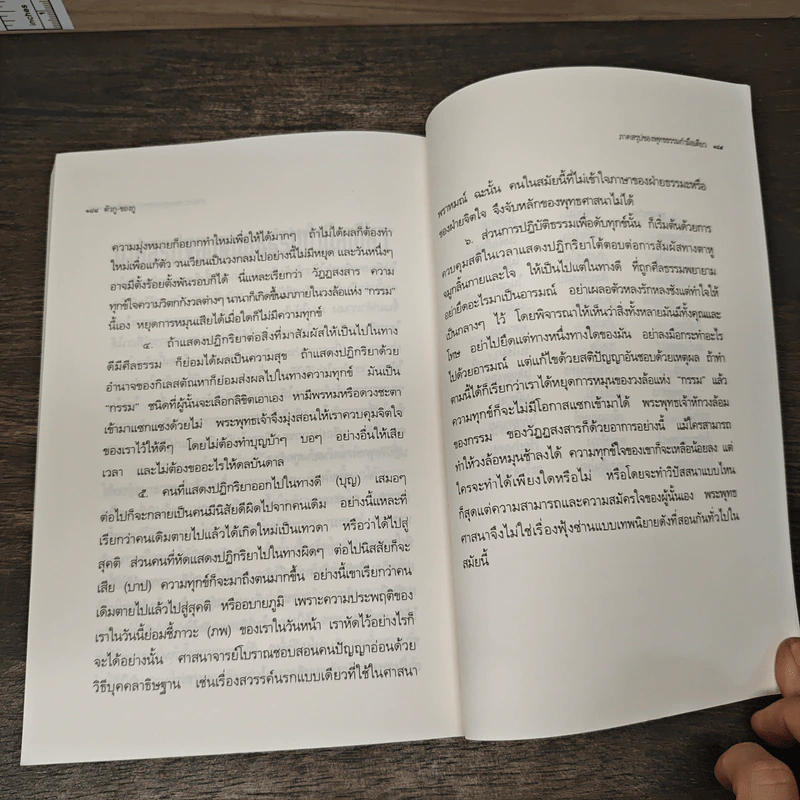 INCHES
๑๘๘ ตัวกู-ของกู
ความมุ่งหมายก็อยากทำใหม่เพื่อให้ได้มากๆ ถ้าไม่ได้ผลก็ต้องทำ
ใหม่เพื่อแก้ตัว วนเวียนเป็นวงกลมไปอย่างนี้ไม่มีหยุด และวันหนึ่งๆ
อาจมีตั้งร้อยตั้งพันรอบก็ได้ นี่แหละเรียกว่า วัฏฏสงสาร ความ
ทุกข์ใจความวิตกกังวลต่างๆ นานาก็เกิดขึ้นมาภายในวงล้อแห่ง “กรรม”
นี้เอง หยุดการหมุนเสียได้เมื่อใดก็ไม่มีความทุกข์
๔. ถ้าแสดงปฏิกริยาต่อสิ่งที่มาสัมผัสให้เป็นไปในทาง
ดีมีศีลธรรม ก็ย่อมได้ผลเป็นความสุข ถ้าแสดงปฏิกริยาด้วย
อำนาจของกิเลสตัณหาก็ย่อมส่งผลไปในทางความทุกข์ มันเป็น
“กรรม” ชนิดที่ผู้นั้นจะเลือกลิขิตเอาเอง หามีพรหมหรือดวงชะตา
เข้ามาแซกแซงด้วยไม่ พระพุทธเจ้าจึงมุ่งสอนให้เราควบคุมจิตใจ
ของเราไว้ให้ดีๆ โดยไม่ต้องทำบุญบ้าๆ บอๆ อย่างอื่นให้เสีย
เวลา และไม่ต้องขออะไรให้ดลบันดาล
๕. คนที่แสดงปฏิกริยาออกไปในทางดี (บุญ) เสมอๆ
ต่อไปก็จะกลายเป็นคนมีนิสัยดีผิดไปจากคนเดิม อย่างนี้แหละที่
เรียกว่าคนเดิมตายไปแล้วได้เกิดใหม่เป็นเทวดา หรือว่าได้ไปสู่
สุคติ ส่วนคนที่หัดแสดงปฏิกริยาไปในทางผิดๆ ต่อไปนิสสัยก็จะ
เสีย (บาป) ความทุกข์ก็จะมาถึงตนมากขึ้น อย่างนี้เขาเรียกว่าคน
เดิมตายไปแล้วไปสู่ทุคติ หรืออบายภูมิ เพราะความประพฤติของ
เราในวันนี้ย่อมชี้ภาวะ (ภพ) ของเราในวันหน้า เราหัดไว้อย่างไรก็
จะได้อย่างนั้น ศาสนาจารย์โบราณชอบสอนคนปัญญาอ่อนด้วย
วิธีบุคคลาธิษฐาน เช่นเรื่องสวรรค์นรกแบบเดียวที่ใช้ในศาสนา
ภาคสรุปของพุทธธรรมกำมือเดียว ๑๘๙
พราหมณ์ ฉะนั้น คนในสมัยนี้ที่ไม่เข้าใจภาษาของฝ่ายธรรมะหรือ
ของฝ่ายจิตใจ จึงจับหลักของพุทธศาสนาไม่ได้
๖. ส่วนการปฏิบัติธรรมเพื่อดับทุกข์นั้น ก็เริ่มต้นด้วยการ
ควบคุมสติในเวลาแสดงปฏิกริยาโต้ตอบต่อการสัมผัสทางตาหู
จมูกลิ้นกายและใจ ให้เป็นไปแต่ในทางดี ที่ถูกศีลธรรมพยายาม
อย่ายึดอะไรมาเป็นอารมณ์ อย่าเผลอตัวหลงรักหลงชังแต่ทำให้
เป็นกลางๆ ไว้ โดยพิจารณาให้เห็นว่าสิ่งทั้งหลายมันมีทั้งคุณและ
โทษ อย่าไปยึดแต่ทางหนึ่งทางใดของมัน อย่าลงมือกระทำอะไร
ไปด้วยอารมณ์ แต่แก้ไขด้วยสติปัญญาอันชอบด้วยเหตุผล ถ้าทำ
ตามนี้ได้ก็เรียกว่าเราได้หยุดการหมุนของวงล้อแห่ง “กรรม” แล้ว
ความทุกข์ก็จะไม่มีโอกาสแซกเข้ามาได้ พระพุทธเจ้าหักวงล้อม
ของกรรม ของวัฏฏสงสารก็ด้วยอาการอย่างนี้ แม้ใครสามารถ
ทำให้วงล้อหมุนช้าลงได้ ความทุกข์ใจของเขาก็จะเหลือน้อยลง แต่
ใครจะทำได้เพียงใดหรือไม่ หรือโดยจะทำวิปัสสนาแบบไหน
ก็สุดแต่ความสามารถและความสมัครใจของผู้นั้นเอง พระพุทธ
ศาสนาจึงไม่ใช่เรื่องฟุ้งซ่านแบบเทพนิยายดังที่สอนกันทั่วไปใน
สมัยนี้